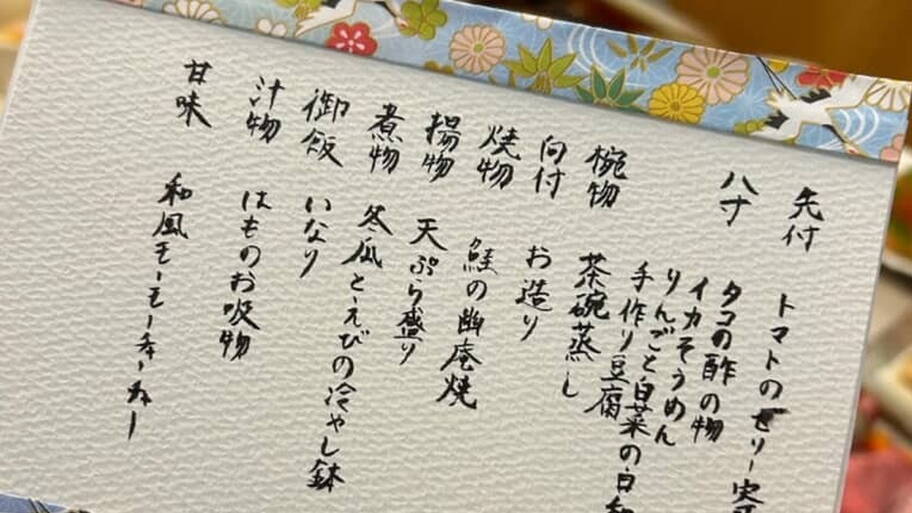 先付 トマトのゼリー寄
八寸 タコの酢の物
イカそうめん
りんごと白菜の白和
手作り豆腐
椀物 茶碗蒸し
向付 お造り
焼物 鮭の幽庵焼
揚物 天ぷら盛り
煮物 冬瓜とえびの冷やし鉢
御飯 いなり
汁物 はものお吸物
甘味 和風モーモーチャーチャー